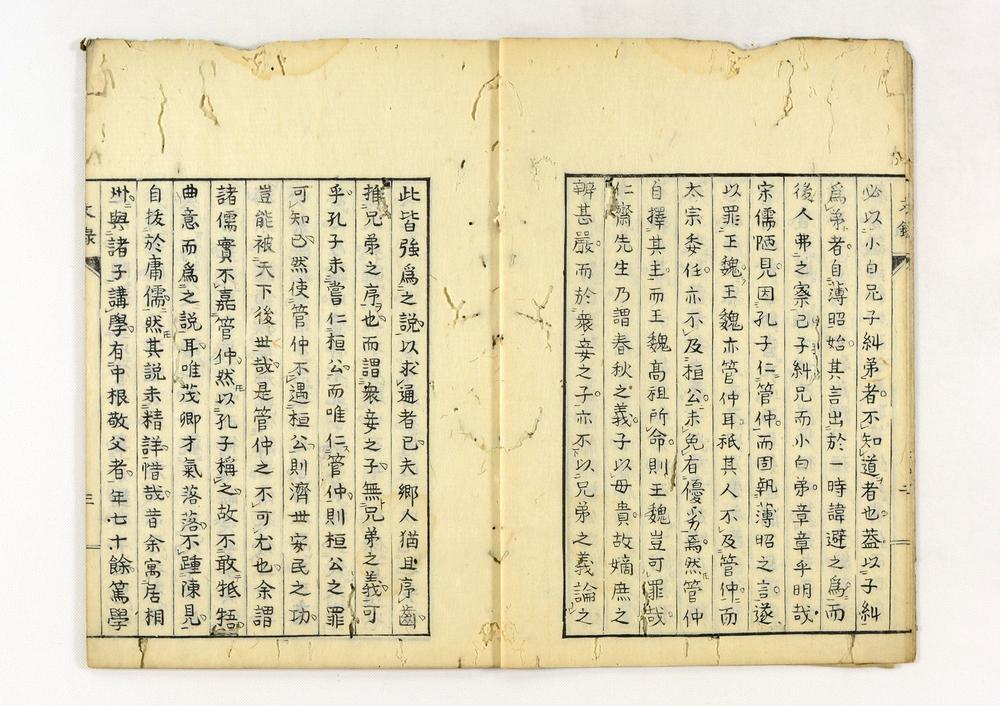 必以小白兄子糾弟者不知道者也蓋以子糾
爲弟者自薄昭始其言出於一時諱避之爲而
後人弗之察已子糾兄而小白弟章章乎明哉
宋儒陋見因孔子仁管仲而固執薄昭之言遂
以罪王魏王魏亦管仲耳祇其人不及管仲而
太宗委任亦不及桓公未免有優劣焉然管仲
自擇其主而王魏高祖所命則王魏豈可罪哉
仁齋先生乃謂春秋之義子以母貴故嫡庶之
辨甚嚴而於衆妾之子亦不以兄弟之義論之
此皆強爲之說以求通者已夫鄉人猶且序齒
推兄弟之序也而謂衆妾之子無兄弟之義可
乎孔子未嘗仁桓公而唯仁管仲則桓公之罪
可知已然使管仲不遇桓公則濟世安民之功
豈能被天下後世哉是管仲之不可尤也余謂
諸儒實不嘉管仲然以孔子稱之故不敢牴牾
曲意而爲之說耳唯茂卿才氣落落不踵陳見
自拔於庸儒然其說未精詳惜哉昔余寓居相
州與諸子講學有中根敬父者年七十餘篤學
三